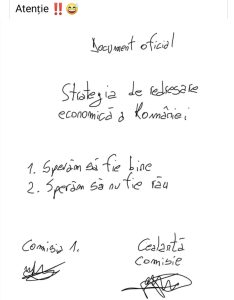 Atenție ‼️😄
Document oficial
Strategia de redresare
economică a României
1. Sperăm să fie bine
2. Sperăm să nu fie rău
Comisia 1.
Cealantă
comisie